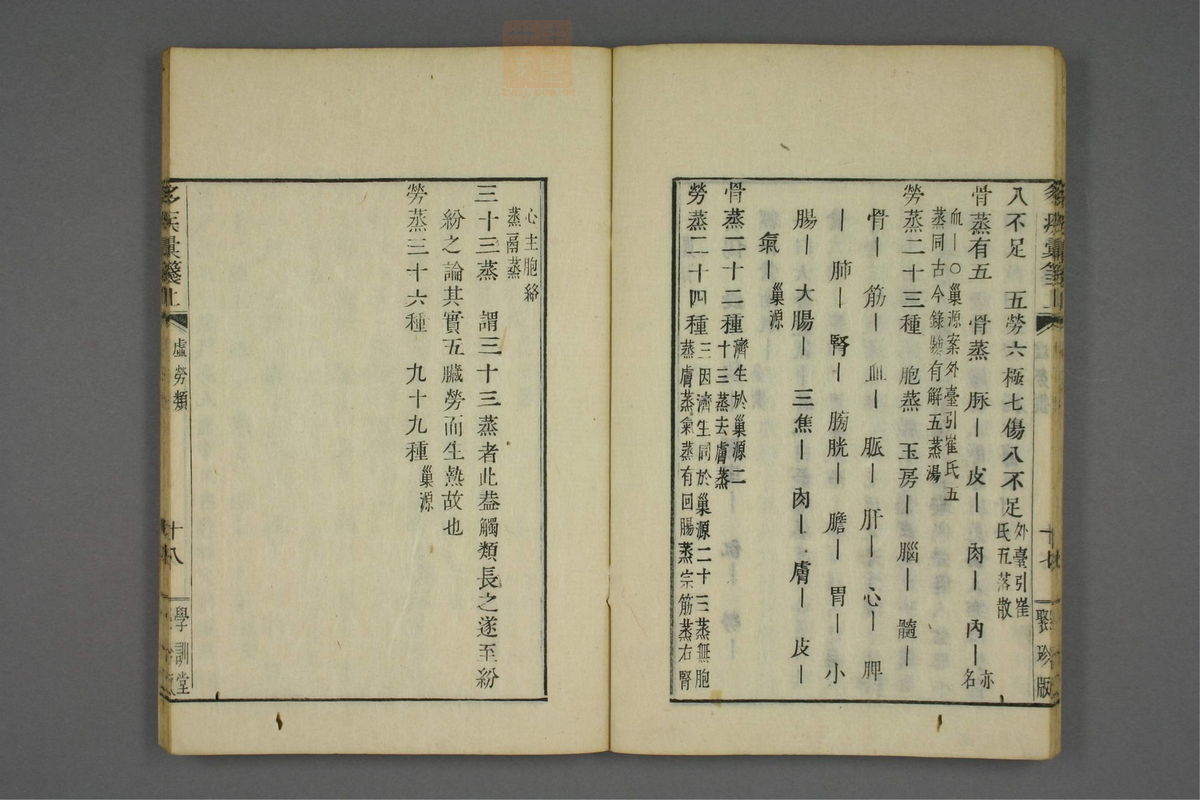 八不足　五勞六極七傷八不足外臺引崔
氏五落散
骨蒸有五　骨蒸　脉｜　皮｜　肉｜　內｜亦
名
血｜〇巢源案外臺引崔氏五
蒸同古今錄驗有解五蒸湯
勞蒸二十三種　胞蒸　玉房｜　腦｜　髓｜
骨｜　筋｜　血｜　脈｜　肝｜　心｜　脾
｜　肺｜　腎｜　膀胱｜　膽｜　胃｜　小
腸｜　大腸｜　三焦｜　肉｜　膚｜　皮｜
氣｜巢源
骨蒸二十二種濟生於巢源二
十三蒸去膚蒸
勞蒸二十四種三因濟生同於巢源二十三蒸無胞
蒸膚蒸氣蒸有回腸蒸宗筋蒸右腎
劉珍版
心主胞絡
蒸鬲蒸
三十三蒸　謂三十三蒸者此盖觸類長之遂至紛
紛之論其實五臟勞而生熱故也
勞蒸三十六種　九十九種巢源
虛勞類
十八
學訓堂